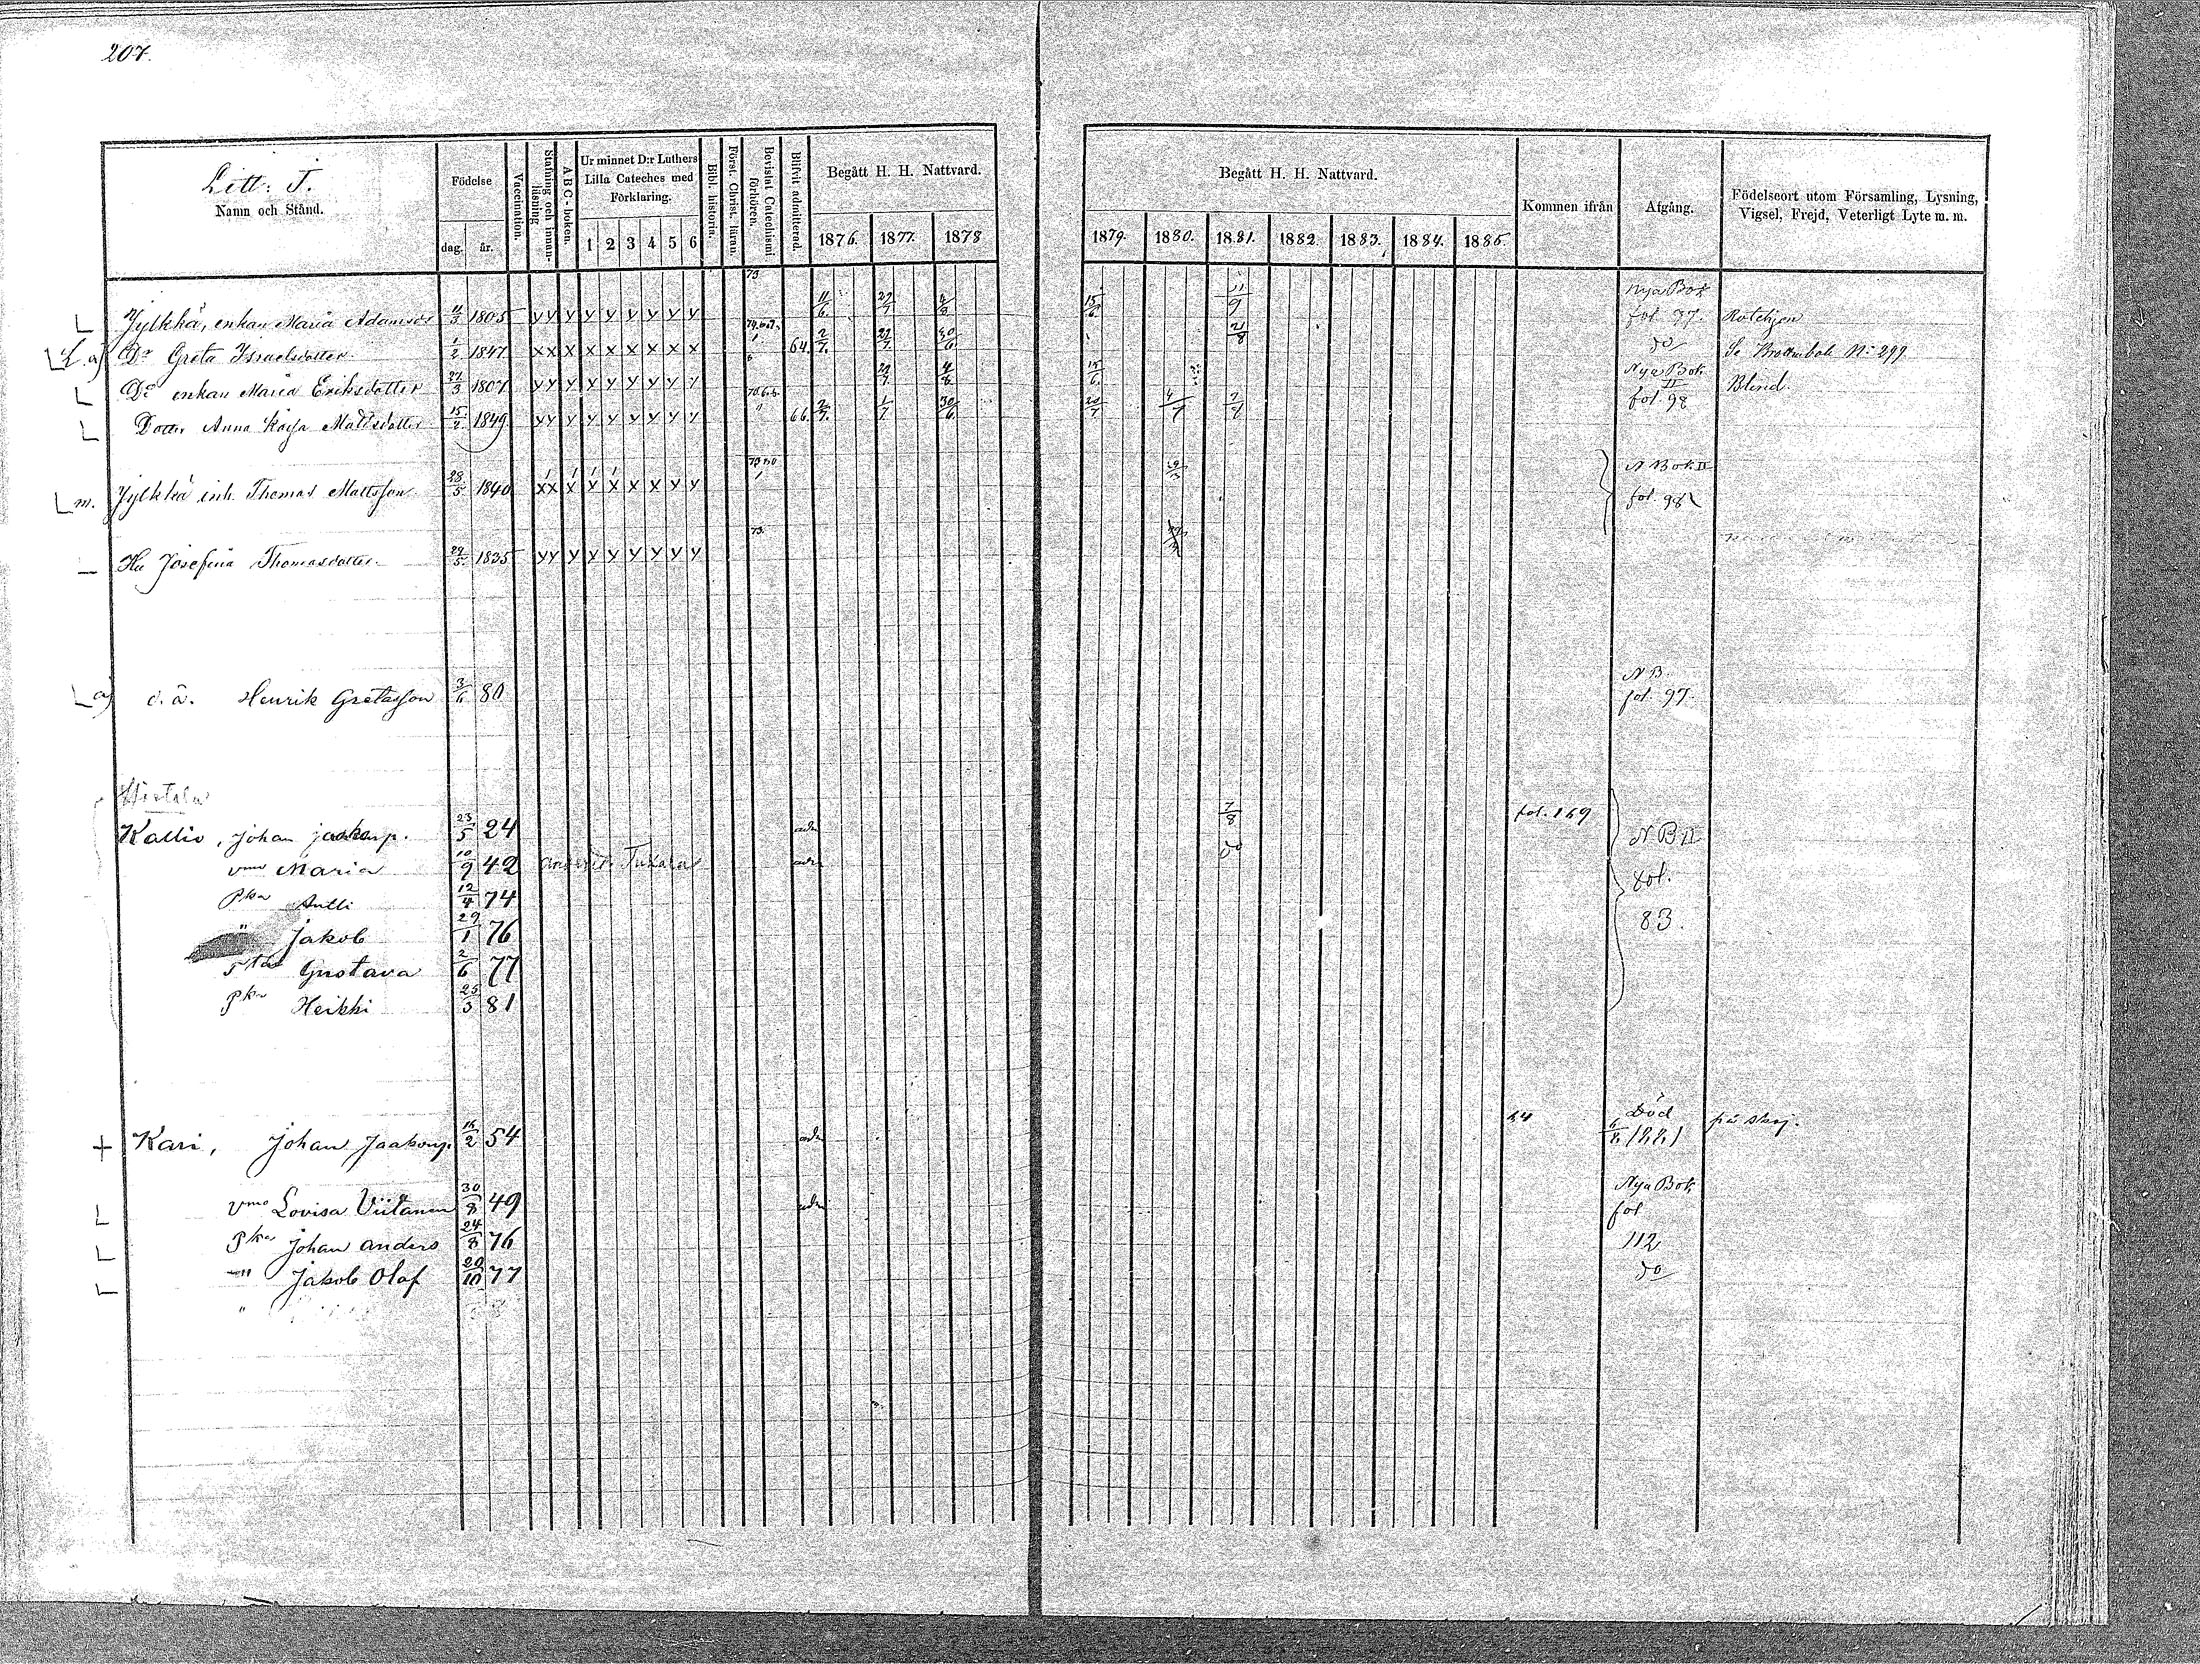 207.
Litt: J.
Namn och Stånd.
Födelse
dag. år.
Vaccination.
Stafning och innanläsning
A B C - boken.
Ur minnet D:r Luthers Lilla Cateches med Förklaring.
1 2 3 4 5 6
Bibl. historia.
Först. Christ. läran.
Bevistat Catechismi förhören.
Blifvit admitterad.
Begått H. H. Nattvard.
1876. 1877. 1878
Begått H. H. Nattvard.
1879. 1880. 1881. 1882. 1883. 1884. 1885.
Kommen ifrån
Afgång.
Födelseort utom Församling, Lysning, Vigsel, Frejd, Veterligt Lyte m. m.
Jylkkä, enkan Maria Adamsdr 11/3 1805 y y y y y y y y y 73 11/6. 29/7 4/8 15/6 11/9 Nya Bok fol. 97. Rotehjon
L. a) Dr Greta Israelsdotter 1/2 1847 x x x x x x x x x 64. 2/7. 29/7 30/6. 21/8 do Se Brottmbok No 299
Do enkan Maria Eriksdotter 27/3 1807 y y y y y y y y y 29/7. 4/8 15/6. Nya Bok II fol 98 Blind
Dotter Anna Kajsa Mattsdotter 15/2 1849 y y y y y y y y y 66. 2/7. 1/7 30/6 20/7 4/7 7/7
m. Jylkkä inh. Thomas Mattsson 28/5 1840 x x x x x x x y y N Bok II fol. 98
Hu Josefina Thomasdotter 27/5. 1835 y y y y y y y y y 73.
a) o. ä. Henrik Gretasson 3/6 80 N B. fol. 97.
Kallio, Johan Jaakonp. 23/5 24 adm 7/8 fol. 169 N B II
vmo Maria 10/9 42 adm do
pka Antti 12/4 74 fol.
" Jakob 29/1 76 83.
Gustava 2/6 77
pka Heikki 25/3 81
+ Kari, Johan Jaakonp. 16/2 54 adm 64 Död på skoj.
vmo Lovisa Viitanen 30/8 49 adm Nya Bok fol
pka Johan Anders 24/8 76 112
" Jakob Olof 20/10 77 do